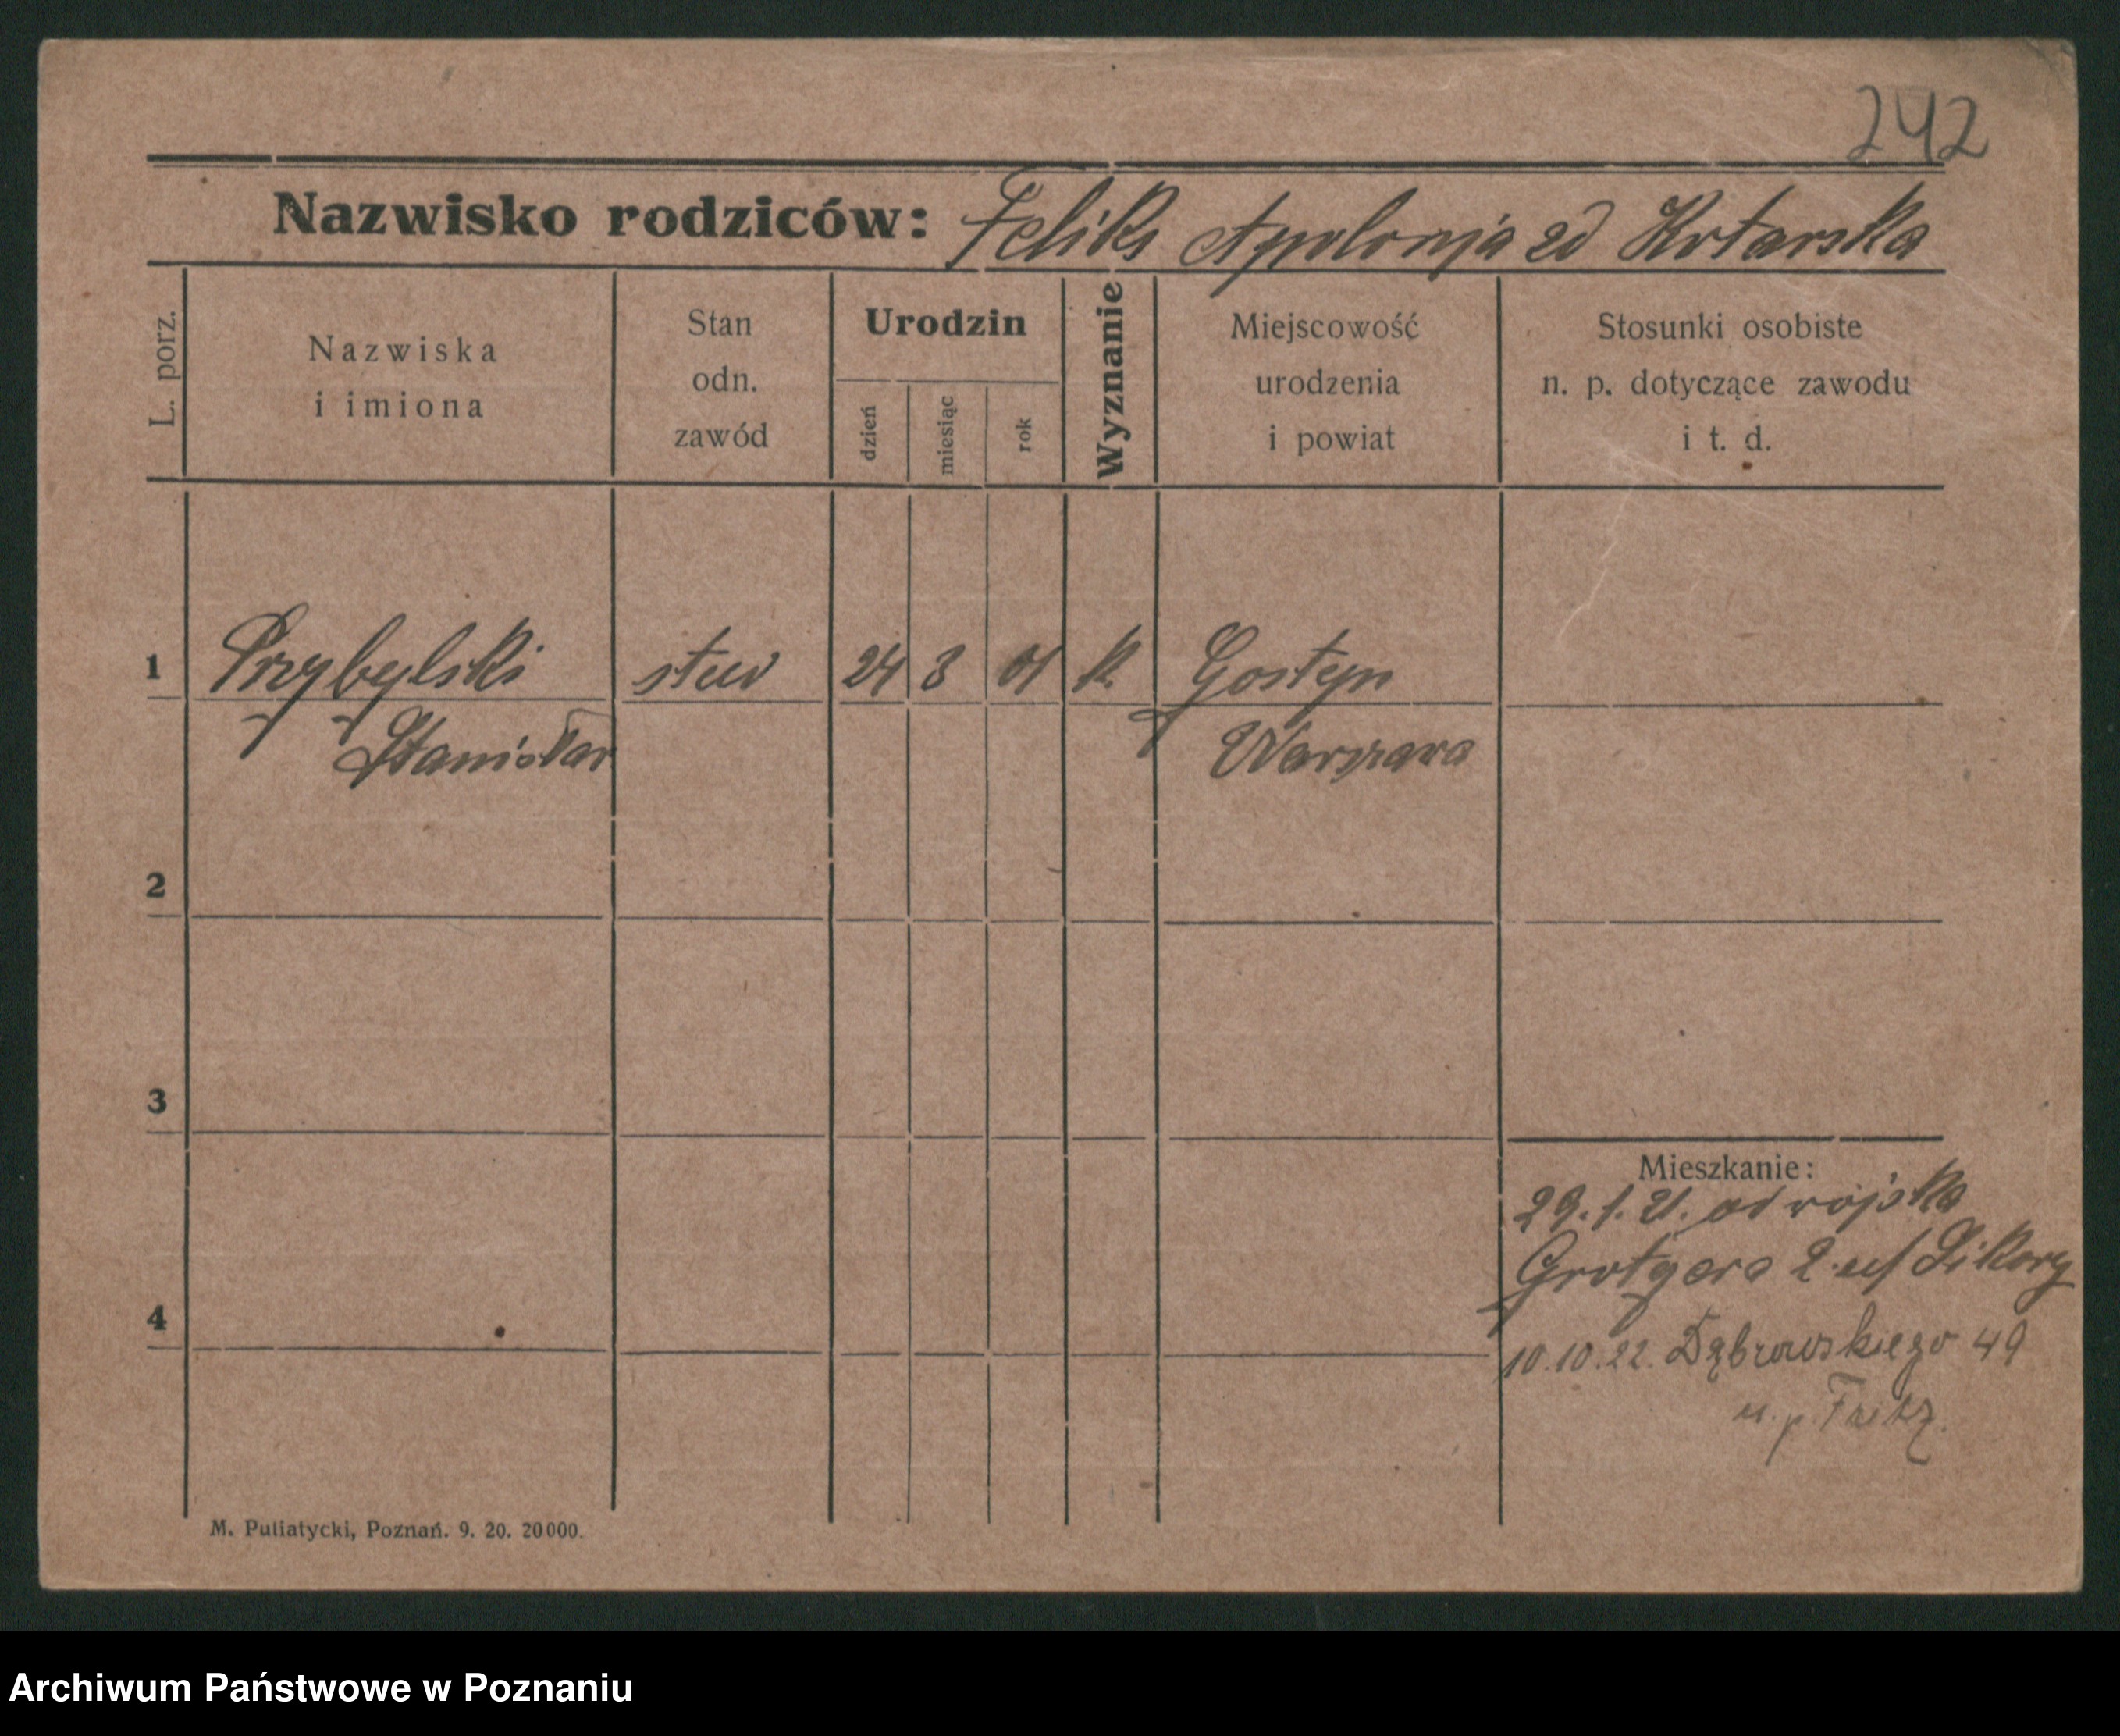 242
Nazwisko rodziców: Feliks Apolonja zd Kotarska
L. porz.
Nazwiska
i imiona
Stan
odn.
zawód
Urodzin
dzień
miesiąc
rok
Wyznanie
Miejscowość
urodzenia
i powiat
Stosunki osobiste
n. p. dotyczące zawodu
i t. d.
1 Przybylski 24 3 01 k. Gostyn
Stanisław Warszawa
2
3
Mieszkanie:
29.1.21. od wojska
Grotgera 2 Sikory
4
10.10.22. Dąbrowskiego 49
u. p.
M. Putiatycki, Poznań. 9. 20. 20000.
Archiwum Państwowe w Poznaniu